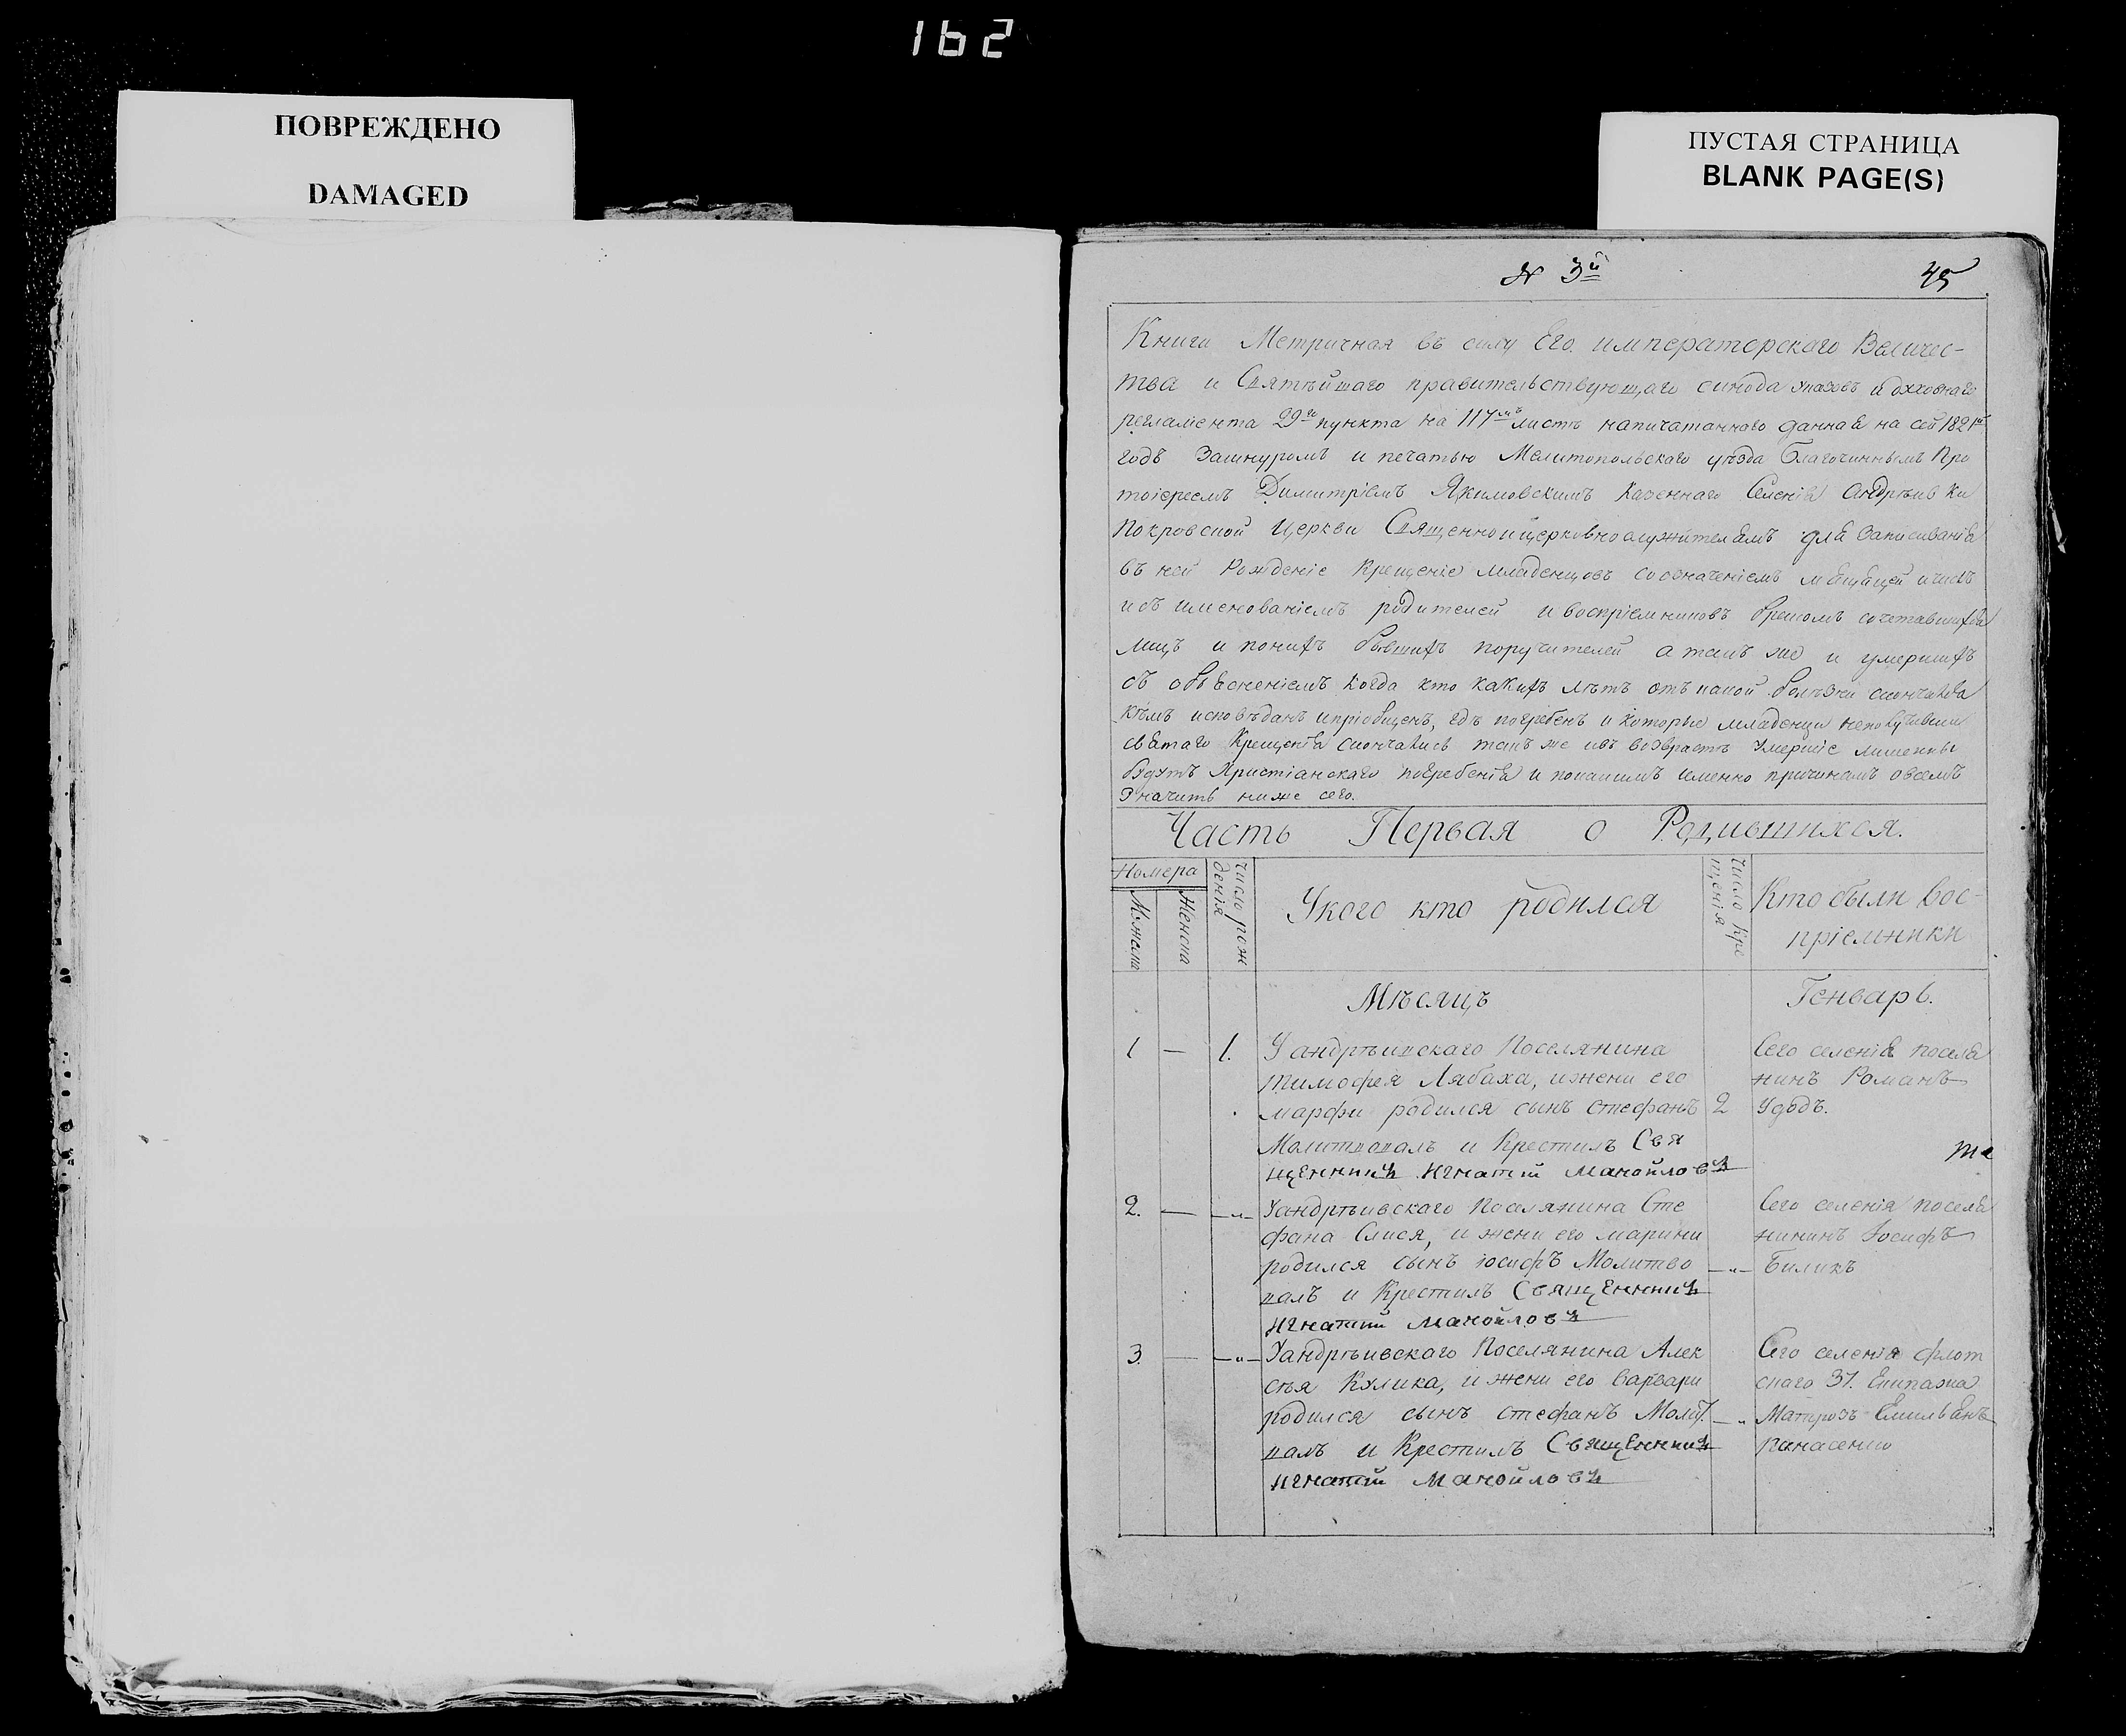 162
ПОВРЕЖДЕНО
DAMAGED
ПУСТАЯ СТРАНИЦА
BLANK PAGE(S)
№ 3й
45
Книги Метричная въ силу Его императорского Величес-
тва и Святѣйшаго правительствующаго синода указовъ и духовнаго
регламента 29го пункта на 117мъ листѣ напичатаннаго данная на сей 1821й
годъ Зашнуромъ и печатью Мелитопольскаго уѣзда Благочиннымъ Про
тоіереемъ Димитріемъ Якимовскимъ казеннаго Селенія Андрѣивки
Покровской Церкви Священноицерковнослужителямъ для Записиванія
въ ней Рожденіе Крещеніе младенцовъ соозначеніемъ мѣсяцей ичислъ
исъ именованіемъ родителей и воспріемниковъ бракомъ сочетавшихся
лицъ и понихъ бывшихъ поручителей атакъ же и умершихъ
съ объясненіемъ когда кто какихъ лѣтъ отъ какой болѣзни скончался
кѣмъ исповѣданъ ипріобщенъ, гдѣ погребенъ и которые младенци неполучивши
святаго Крещенія скончались такъ же ивъ возврастѣ Умершіе лишенны
будутъ Християнскаго погребенія и покакимъ именно причинамъ овсемъ
Значитъ ниже сего.
Часть Первая о Родившихся.
Номера
Мужеска
Женска
Число рож
денія
Укого кто родился
Число кре
щенія
Кто были вос-
пріемники
Мѣсяцъ
Генварь.
1 — 1. Уандрѣивскаго Поселянина
тимофея Лябаха, ижени его
марфи родился сынъ стефанъ 2
Молитвовалъ и Крестилъ Свя
щенникъ Игнатій Манойловъ
Сего селенія поселя
нинъ Романъ
Удодъ.
2. — —„— Уандрѣивскаго Поселянина Сте
фана Слися, и жени его марини
родился сынъ іосифъ Молитво —„—
валъ и Крестилъ Священникъ
Игнатій Манойловъ
Сего селенія поселя
нинъ Іосифъ
Биликъ
3. — —„— Уандрѣивскаго Поселянина Алек
сѣя Кулика, и жени его варвари
родился сынъ стефанъ Молит —„
валъ и Крестилъ Священникъ
Игнатій Манойловъ
Сего селенія флот
скаго 31. Екипажа
Матрозъ Емильянъ
Панасенко